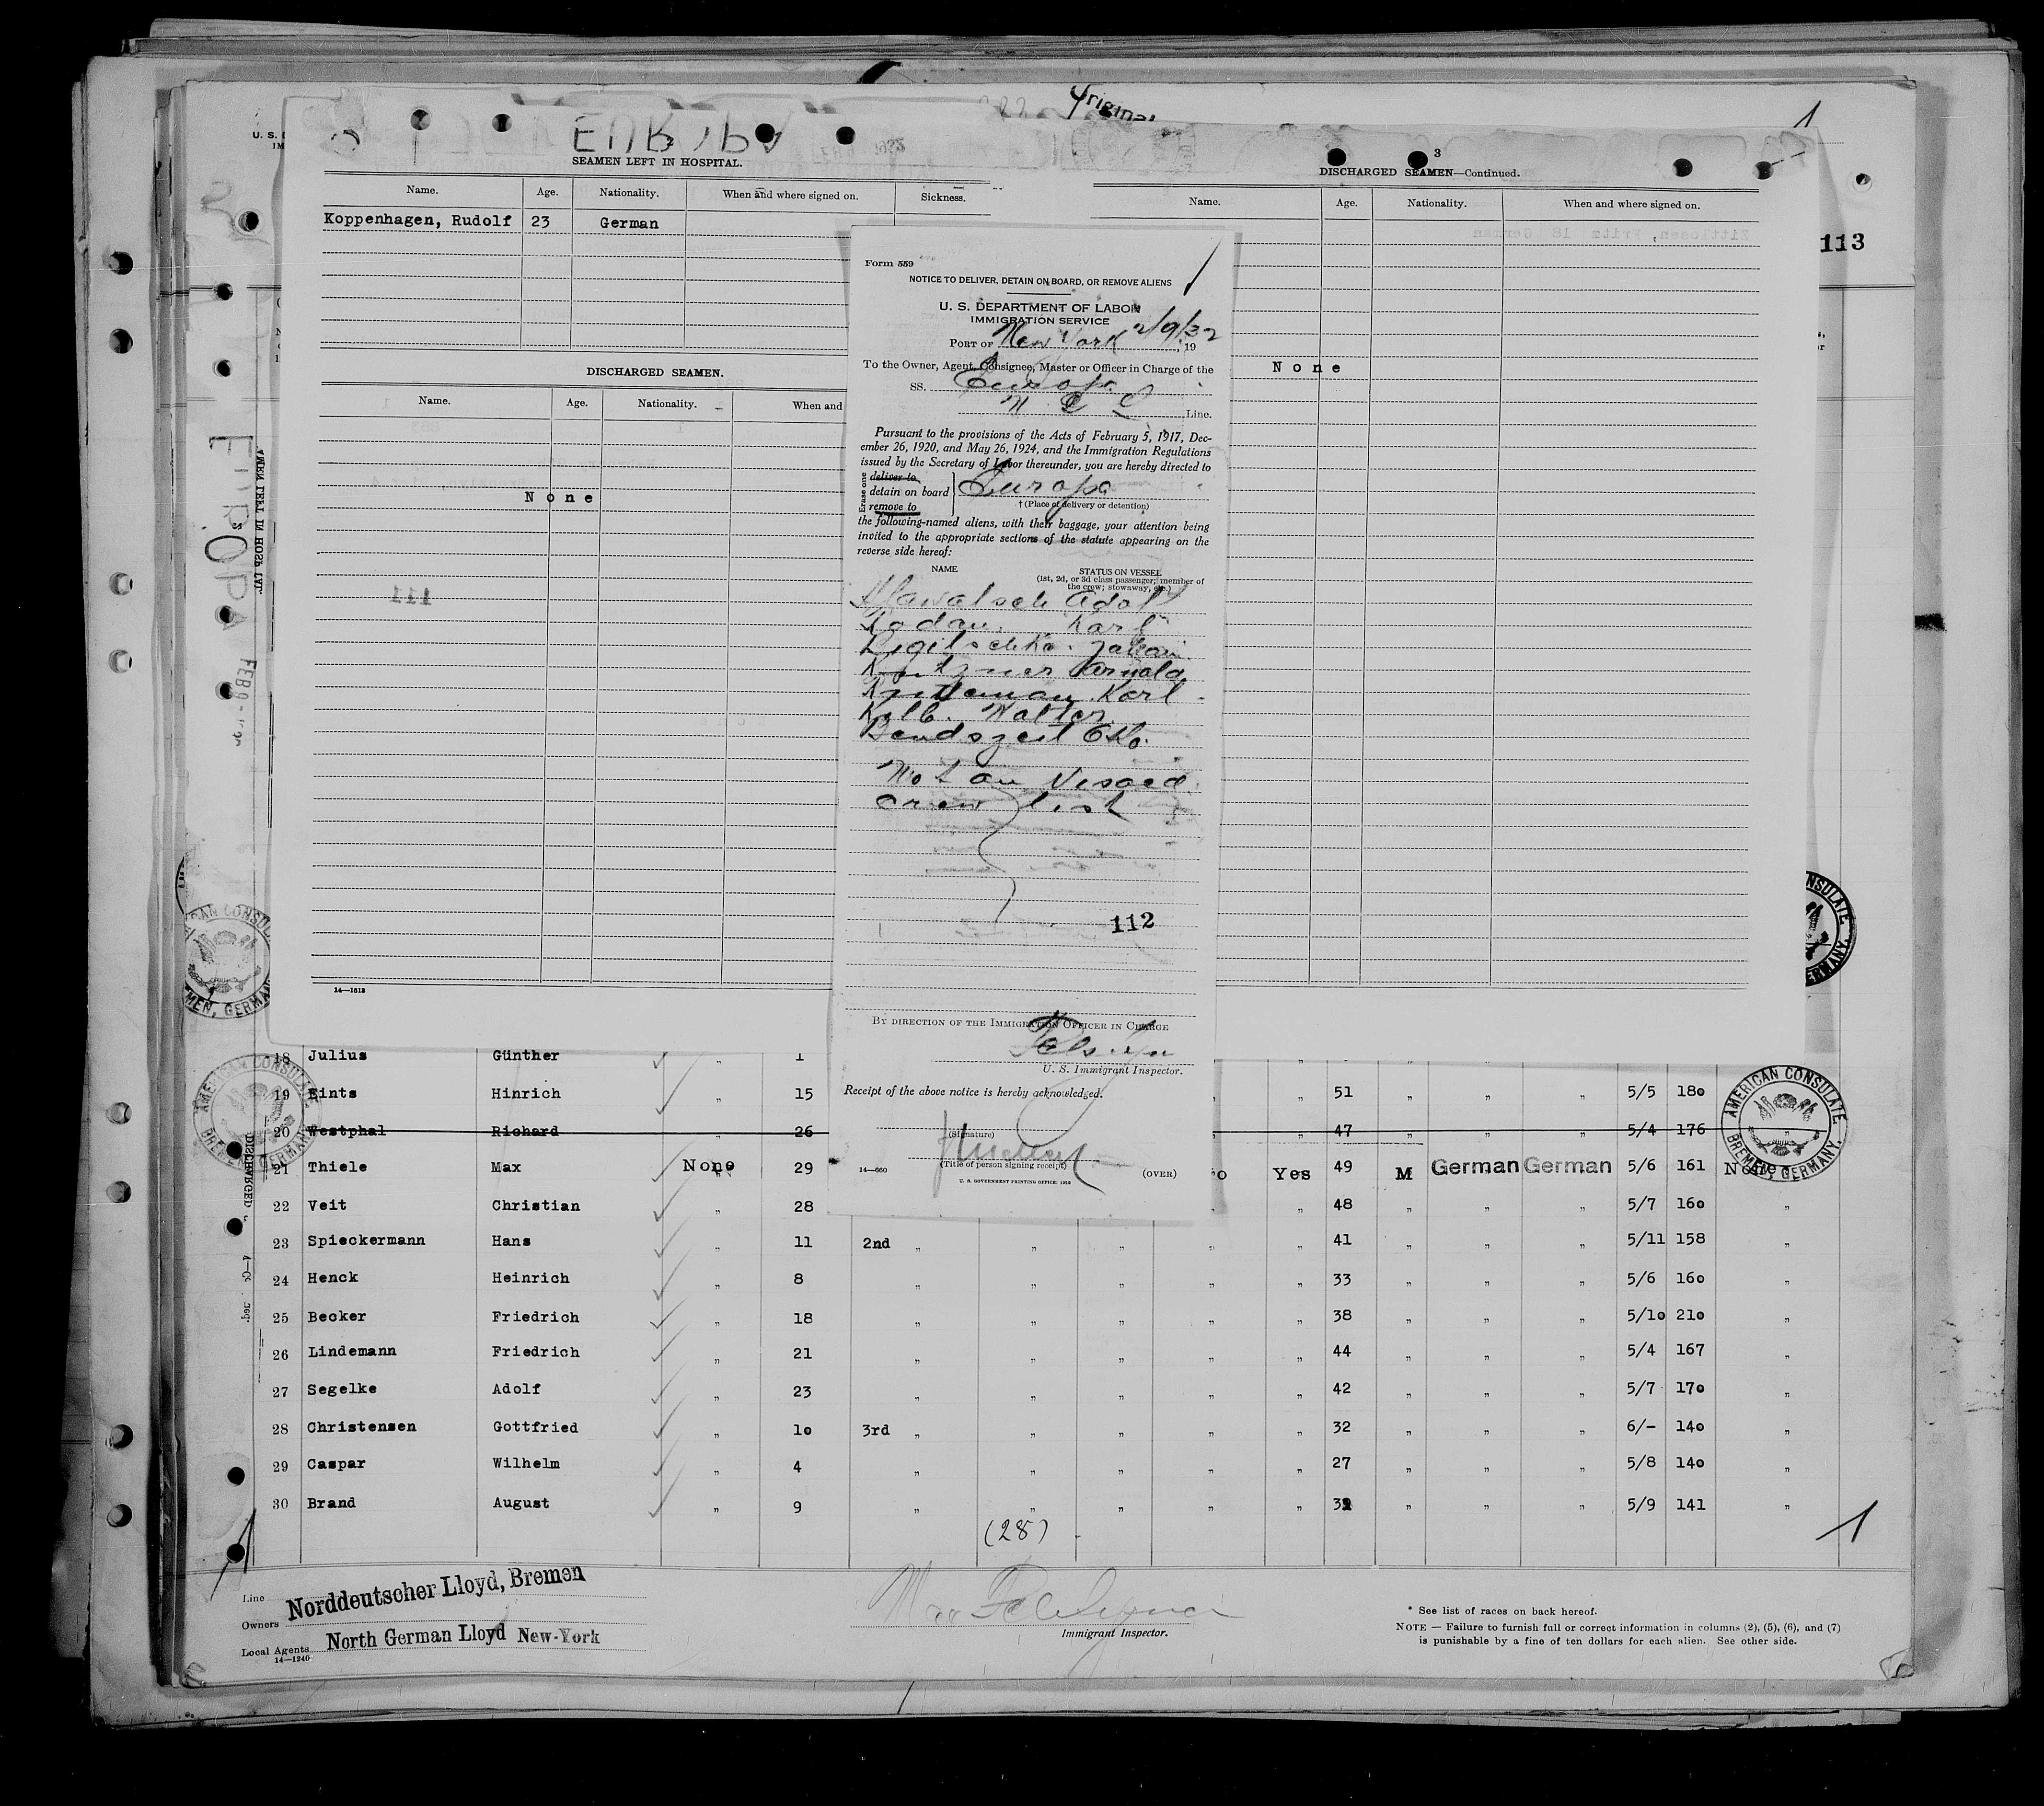 Original
1
EUROPA
SEAMEN LEFT IN HOSPITAL.
Name. Age. Nationality. When and where signed on. Sickness.
Koppenhagen, Rudolf 23 German
3
DISCHARGED SEAMEN—Continued.
Name. Age. Nationality. When and where signed on.
None
113
DISCHARGED SEAMEN.
Name. Age. Nationality. When and
None
111
14—1613
Form 559
NOTICE TO DELIVER, DETAIN ON BOARD, OR REMOVE ALIENS
U. S. DEPARTMENT OF LABOR
IMMIGRATION SERVICE
PORT OF New York 2/9/32, 19
To the Owner, Agent, Consignee, Master or Officer in Charge of the
SS. Europa
N G L Line.
Pursuant to the provisions of the Acts of February 5, 1917, Dec-
ember 26, 1920, and May 26, 1924, and the Immigration Regulations
issued by the Secretary of Labor thereunder, you are hereby directed to
Erase one
deliver to
detain on board Europa
remove to † (Place of delivery or detention)
the following-named aliens, with their baggage, your attention being
invited to the appropriate sections of the statute appearing on the
reverse side hereof:
NAME STATUS ON VESSEL
(1st, 2d, or 3d class passenger; member of
the crew; stowaway, etc.)
Adolf
Karl
Arnold
Karl
Kolb. Walter
Otto.
Not on Visaed
crew list
112
BY DIRECTION OF THE IMMIGRATION OFFICER IN CHARGE
U. S. Immigrant Inspector.
Receipt of the above notice is hereby acknowledged.
(Signature)
(Title of person signing receipt)
14—660 (OVER)
U. S. GOVERNMENT PRINTING OFFICE: 1928
18 Julius Günther 1
19 Eints Hinrich „ 15 „ „ 51 „ „ „ 5/5 180
20 Westphal Richard „ 26 „ „ 47 „ „ „ 5/4 176 „
21 Thiele Max None 29 Yes 49 M German German 5/6 161 None
22 Veit Christian „ 28 „ „ 48 „ „ „ 5/7 160 „
23 Spieckermann Hans „ 11 2nd „ „ „ „ „ 41 „ „ „ 5/11 158 „
24 Henck Heinrich „ 8 „ „ „ „ „ 33 „ „ „ 5/6 160 „
25 Becker Friedrich „ 18 „ „ „ „ „ 38 „ „ „ 5/10 210 „
26 Lindemann Friedrich „ 21 „ „ „ „ „ 44 „ „ „ 5/4 167 „
27 Segelke Adolf „ 23 „ „ „ „ „ 42 „ „ „ 5/7 170 „
28 Christensen Gottfried „ 10 3rd „ „ „ „ „ 32 „ „ „ 6/- 140 „
29 Caspar Wilhelm „ 4 „ „ „ „ „ 27 „ „ „ 5/8 140 „
30 Brand August „ 9 „ „ „ „ „ „ „ „ 5/9 141 „
(28)
1
AMERICAN CONSULATE.
BREMEN, GERMANY.
Line Norddeutscher Lloyd, Bremen
Owners
Local Agents North German Lloyd New-York
14—1240
Immigrant Inspector.
* See list of races on back hereof.
NOTE — Failure to furnish full or correct information in columns (2), (5), (6), and (7)
is punishable by a fine of ten dollars for each alien. See other side.